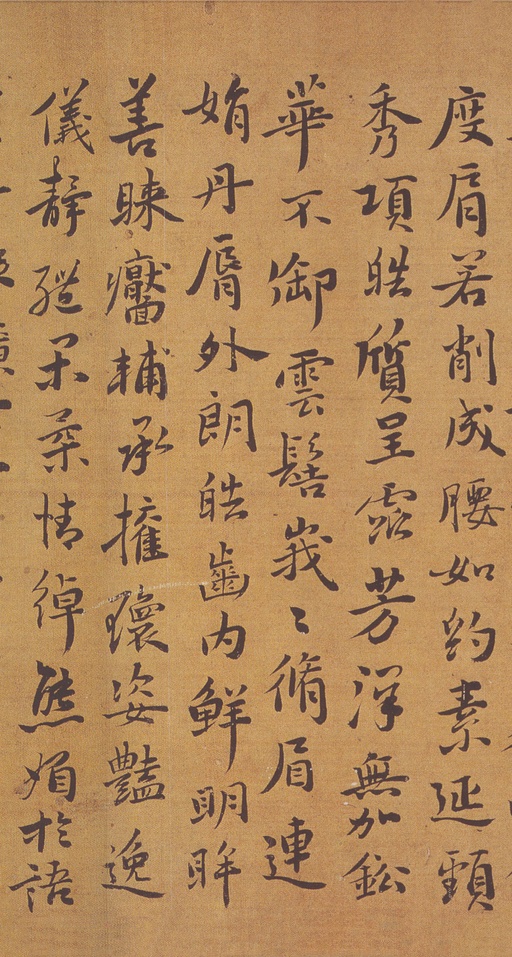 度肩若削成腰如約素延頸
秀項皓質呈露芳澤無加鈆
華不御雲髻峩〻脩眉連
娟丹脣外朗皓齒內鮮明眸
善睞靨輔承權瓌姿豔逸
儀靜體閑柔情綽態媚於語